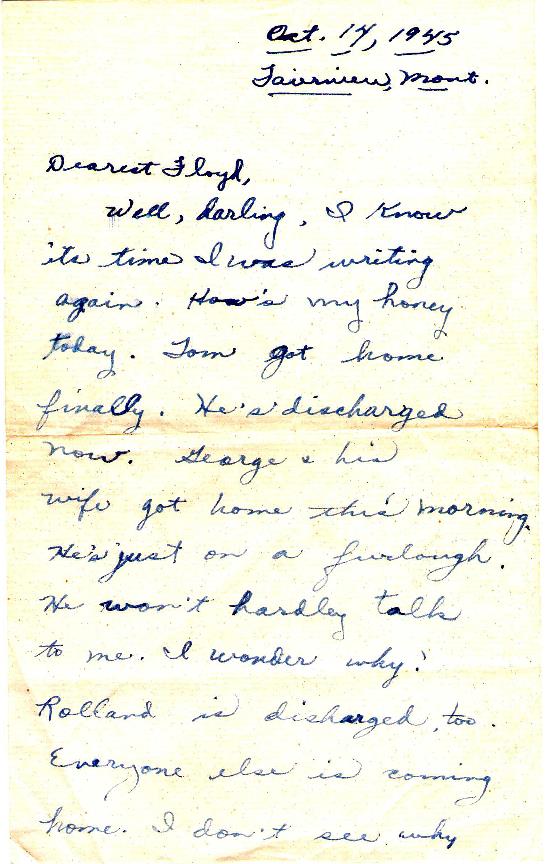 Oct. 14, 1945
Fairview, Mont.
Dearest Floyd,
Well, darling, I know
its time I was writing
again. How's my honey
today. Tom got home
finally. He's discharged
now. George & his
wife got home this morning.
He's just on a furlough.
He won't hardley talk
to me. I wonder why?
Rolland is disharged, too.
Everyone else is coming
home. I don't see why